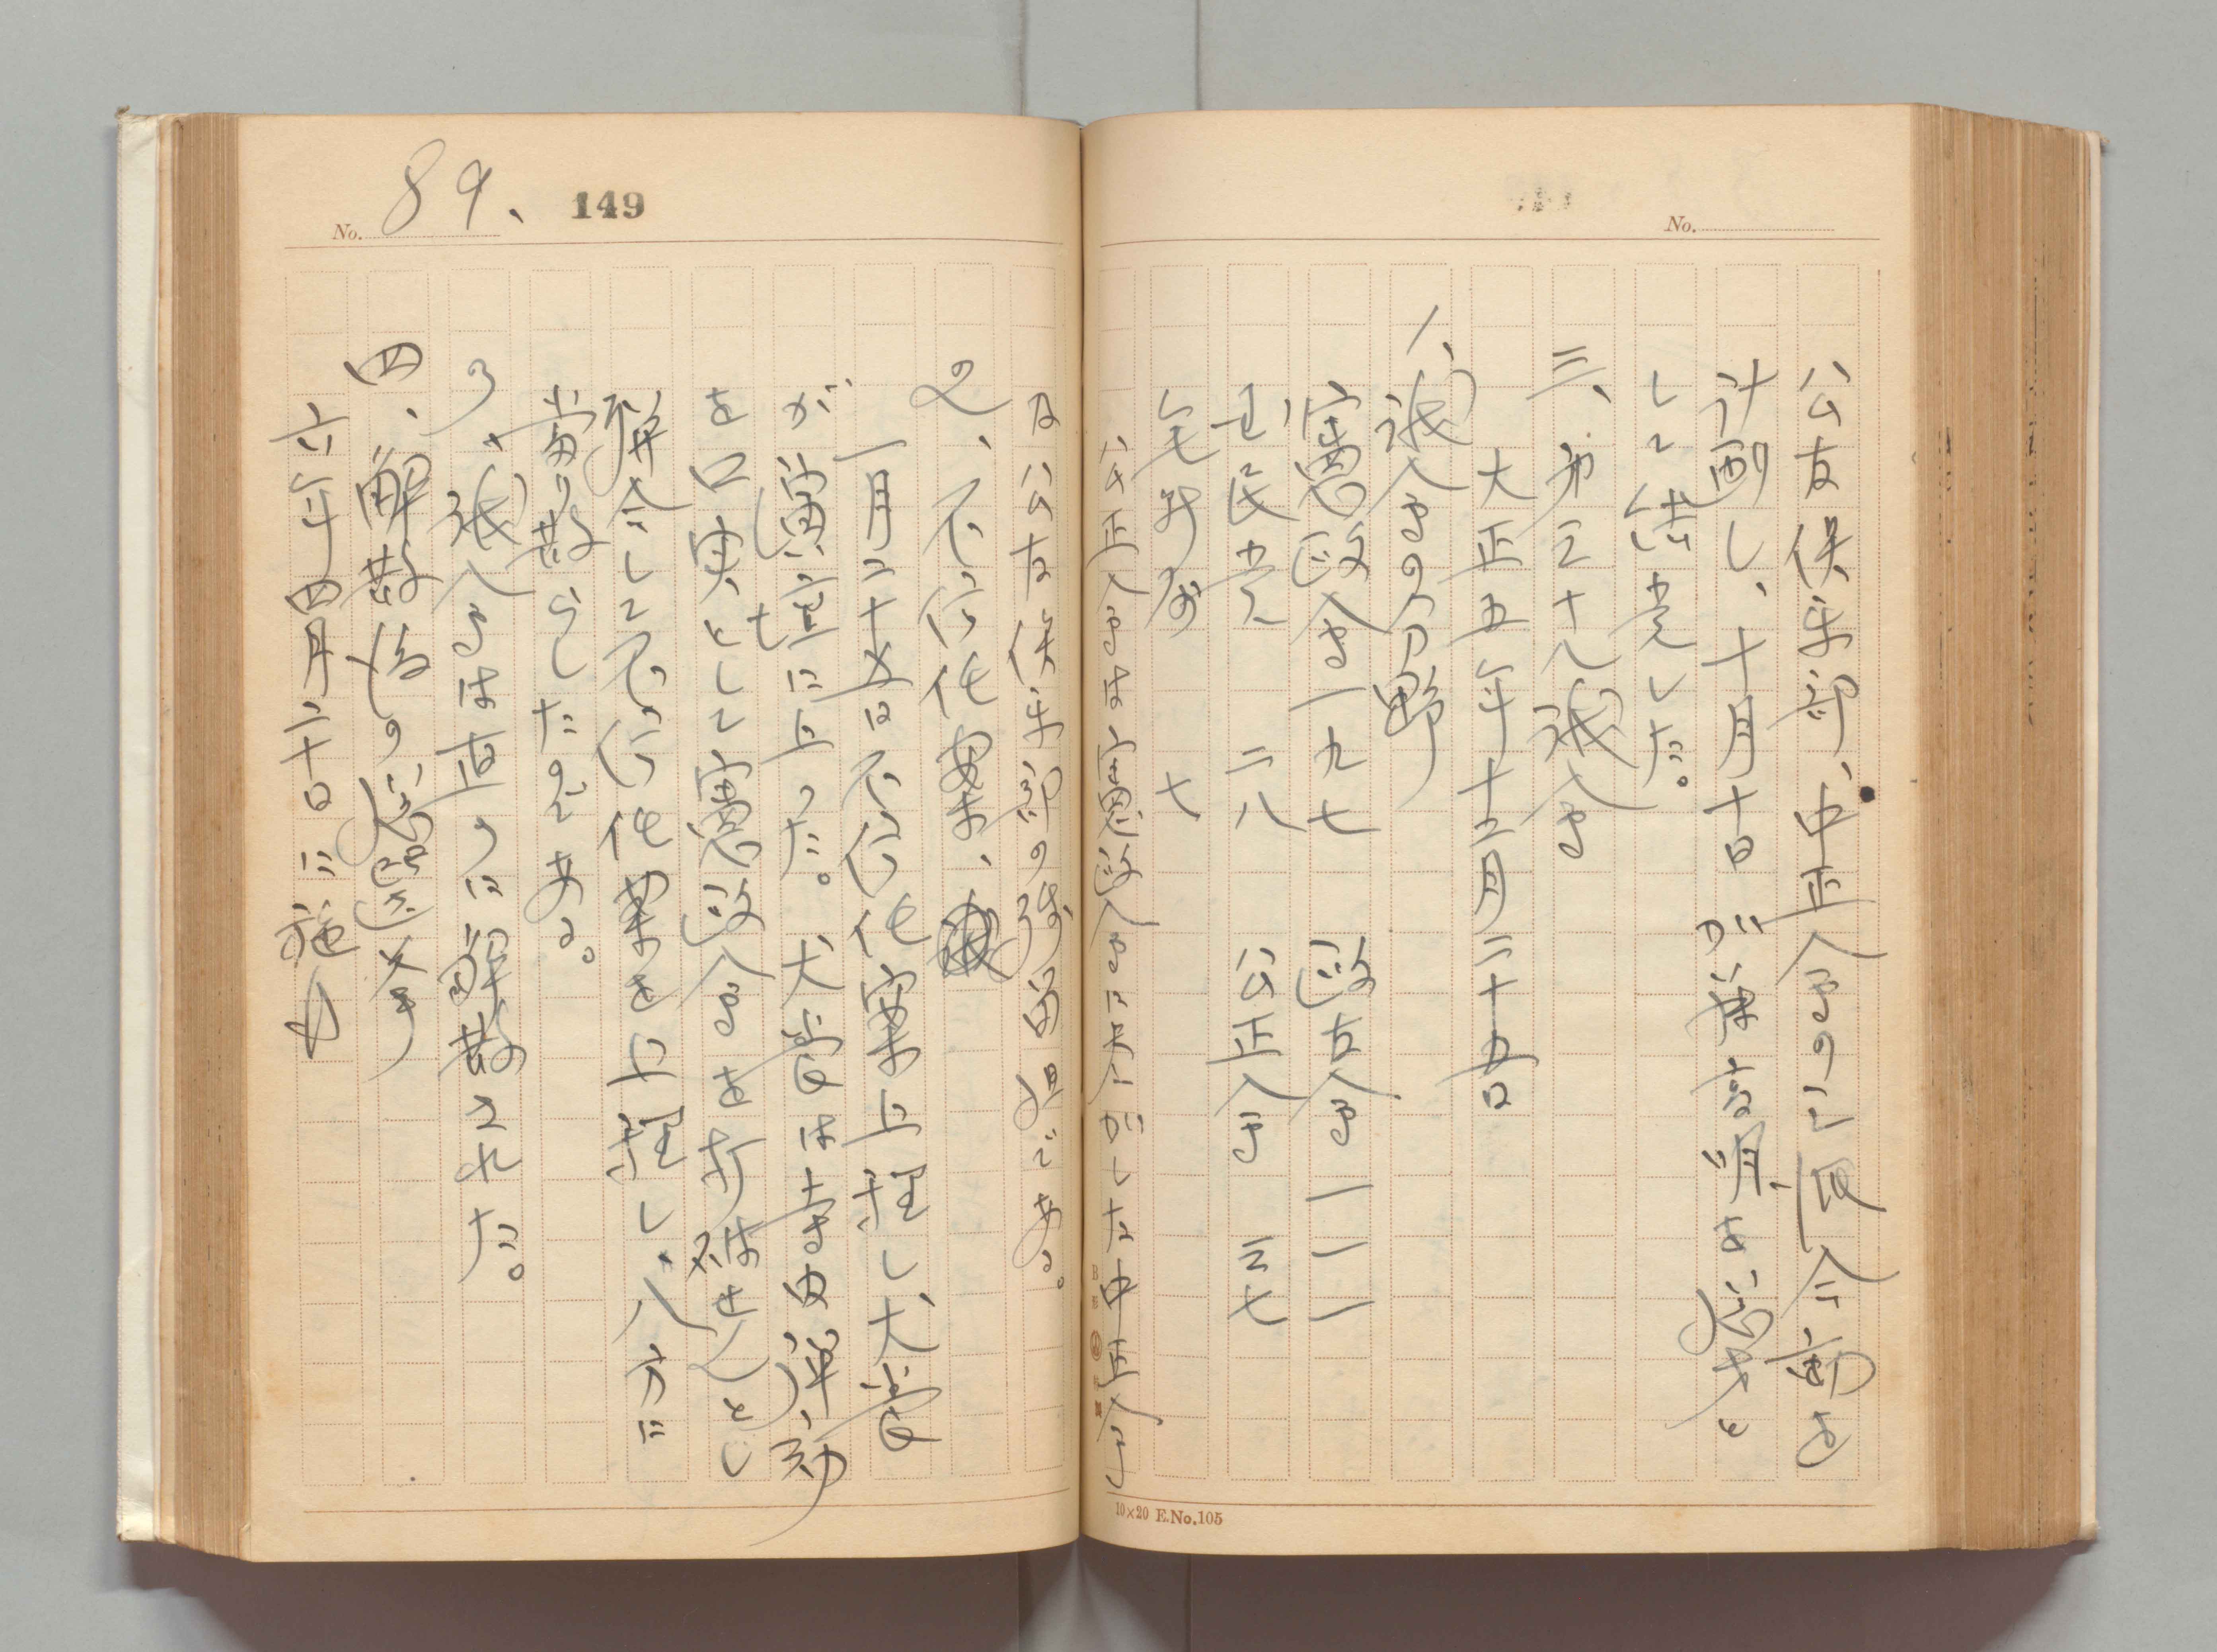 No.
公友倶楽部、中正会の三派合同を
計画し、十月十日加藤高明を総裁と
して結党した。
三、第三十八議会
大正五年十二月二十五日
1、議会の分野
憲政会一九七 政友会一一一
国民党 二八 公正会 三七
無所属 七
公正会は憲政会に した中正会
10×20 E.No.105
No. 89、 149
及公友倶楽部の残留組である。
2、不信任案、
一月二十五日不信任案上程し、犬養
が演壇にも上った。犬養は寺内弾劾
を口実として憲政会を打破せんとし
聯合して不信任案を上程し、八方に
当り散らしたのである。
3、議会は直つに解散された。
四、解散後の総選挙
六年四月二十日に施行